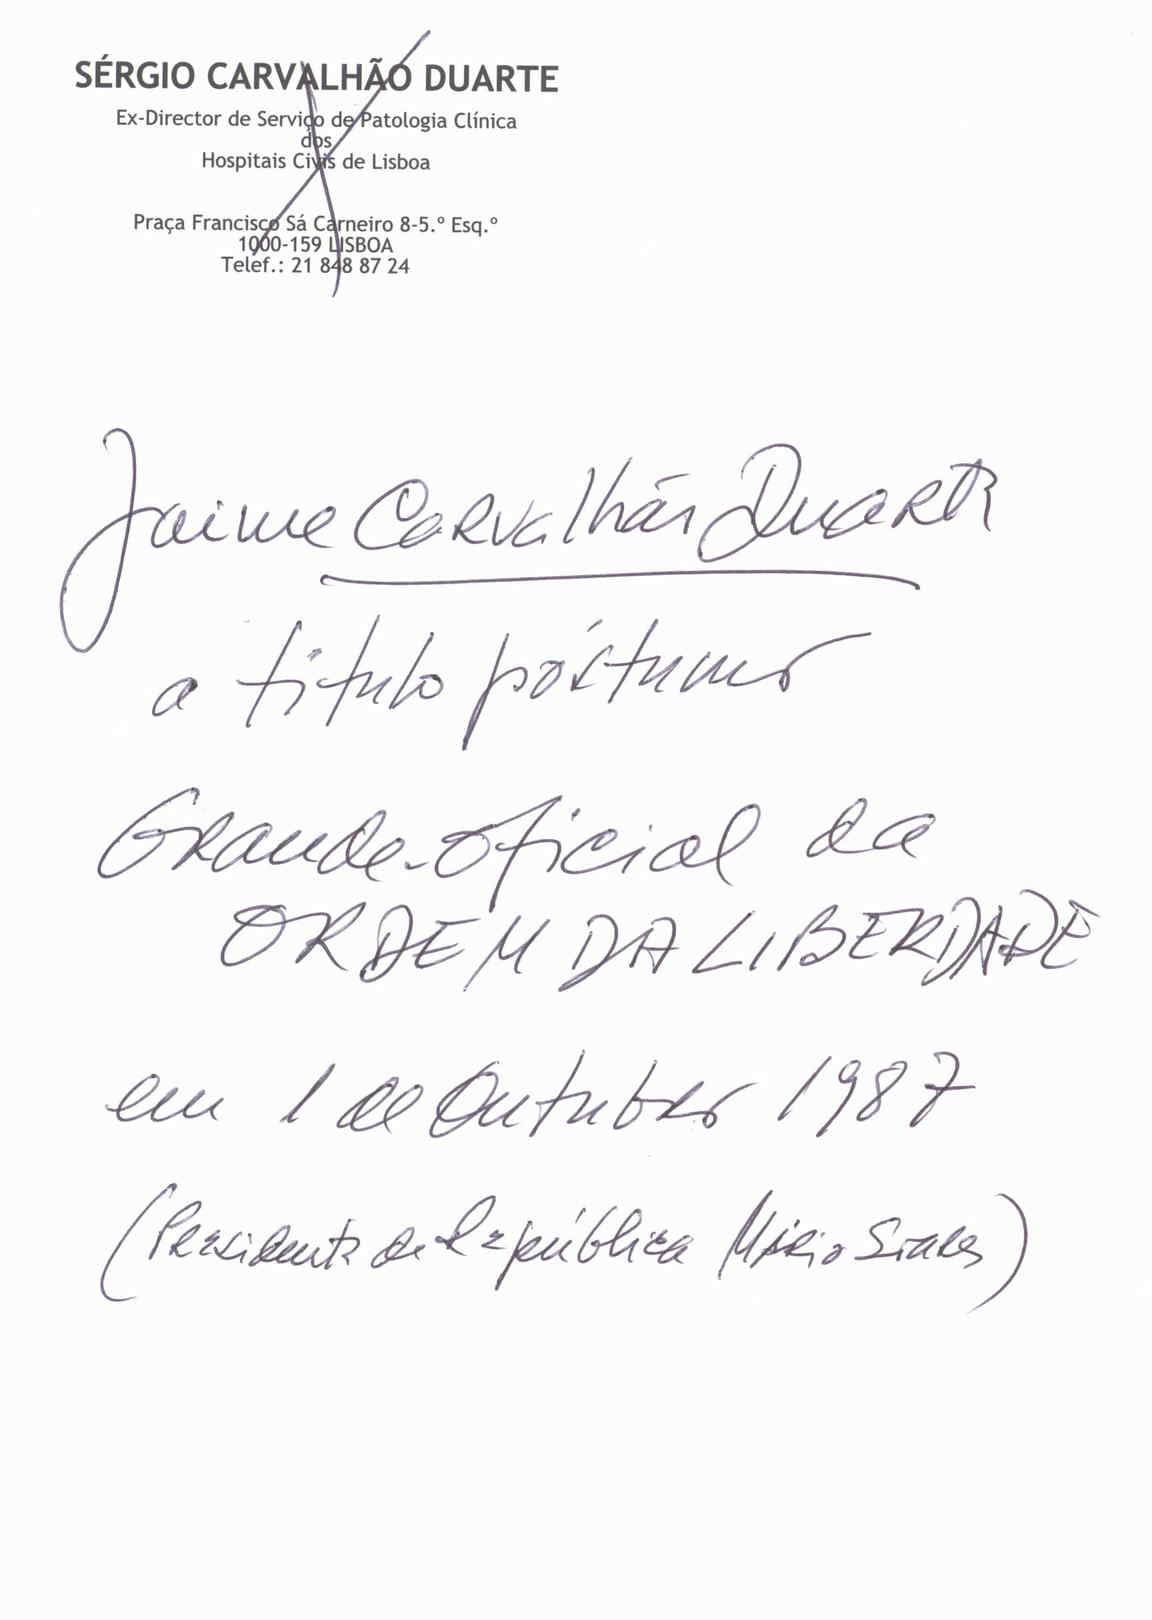 SÉRGIO CARVALHÃO DUARTE
Ex-Director de Serviço de Patologia Clínica
dos
Hospitais Civis de Lisboa
Praça Francisco Sá Carneiro 8-5.º Esq.º
1000-159 LISBOA
Telef.: 21 848 87 24
Jaime Carvalhão Duarte
a título póstumo
Grande-Oficial da
ORDEM DA LIBERDADE
em 1 de Outubro 1987
(Presidente da República Mário Soares)